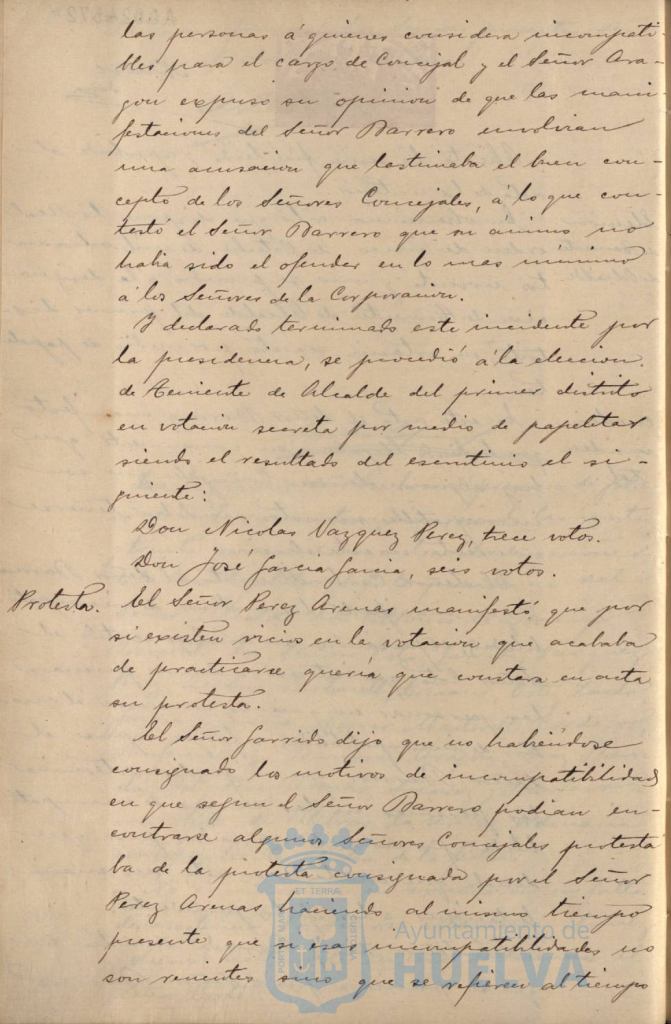 las personas á quienes considera incompati-
bles para el cargo de Concejal y el Señor Ara-
gon expuso su opinion de que las mani-
festaciones del Señor Barrero envolvian
una acusacion que lastimaba el buen con-
cepto de los Señores Concejales, á lo que con-
testó el Señor Barrero que su ánimo no
habia sido el ofender en lo mas mínimo
á los Señores de la Corporacion.
Y declarado terminado este incidente por
la presidencia, se procedió á la eleccion
de Teniente de Alcalde del primer distrito
en votacion secreta por medio de papeletas
siendo el resultado del escrutinio el si-
guiente:
Don Nicolas Vazquez Perez, trece votos.
Don José Garcia Garcia, seis votos.
Protesta. El Señor Perez Arenas manifestó que por
si existen vicios en la votacion que acababa
de practicarse quería que constara en acta
su protesta.
El Señor Garrido dijo que no habiéndose
consignado los motivos de incompatibilidad
en que segun el Señor Barrero podian en-
contrarse algunos Señores Concejales protesta
ba de la protesta consignada por el Señor
Perez Arenas haciendo al mismo tiempo
presente que si esas incompatibilidades no
son recientes sino que se refieren al tiempo
ET TERRA
Ayuntamiento de
HUELVA